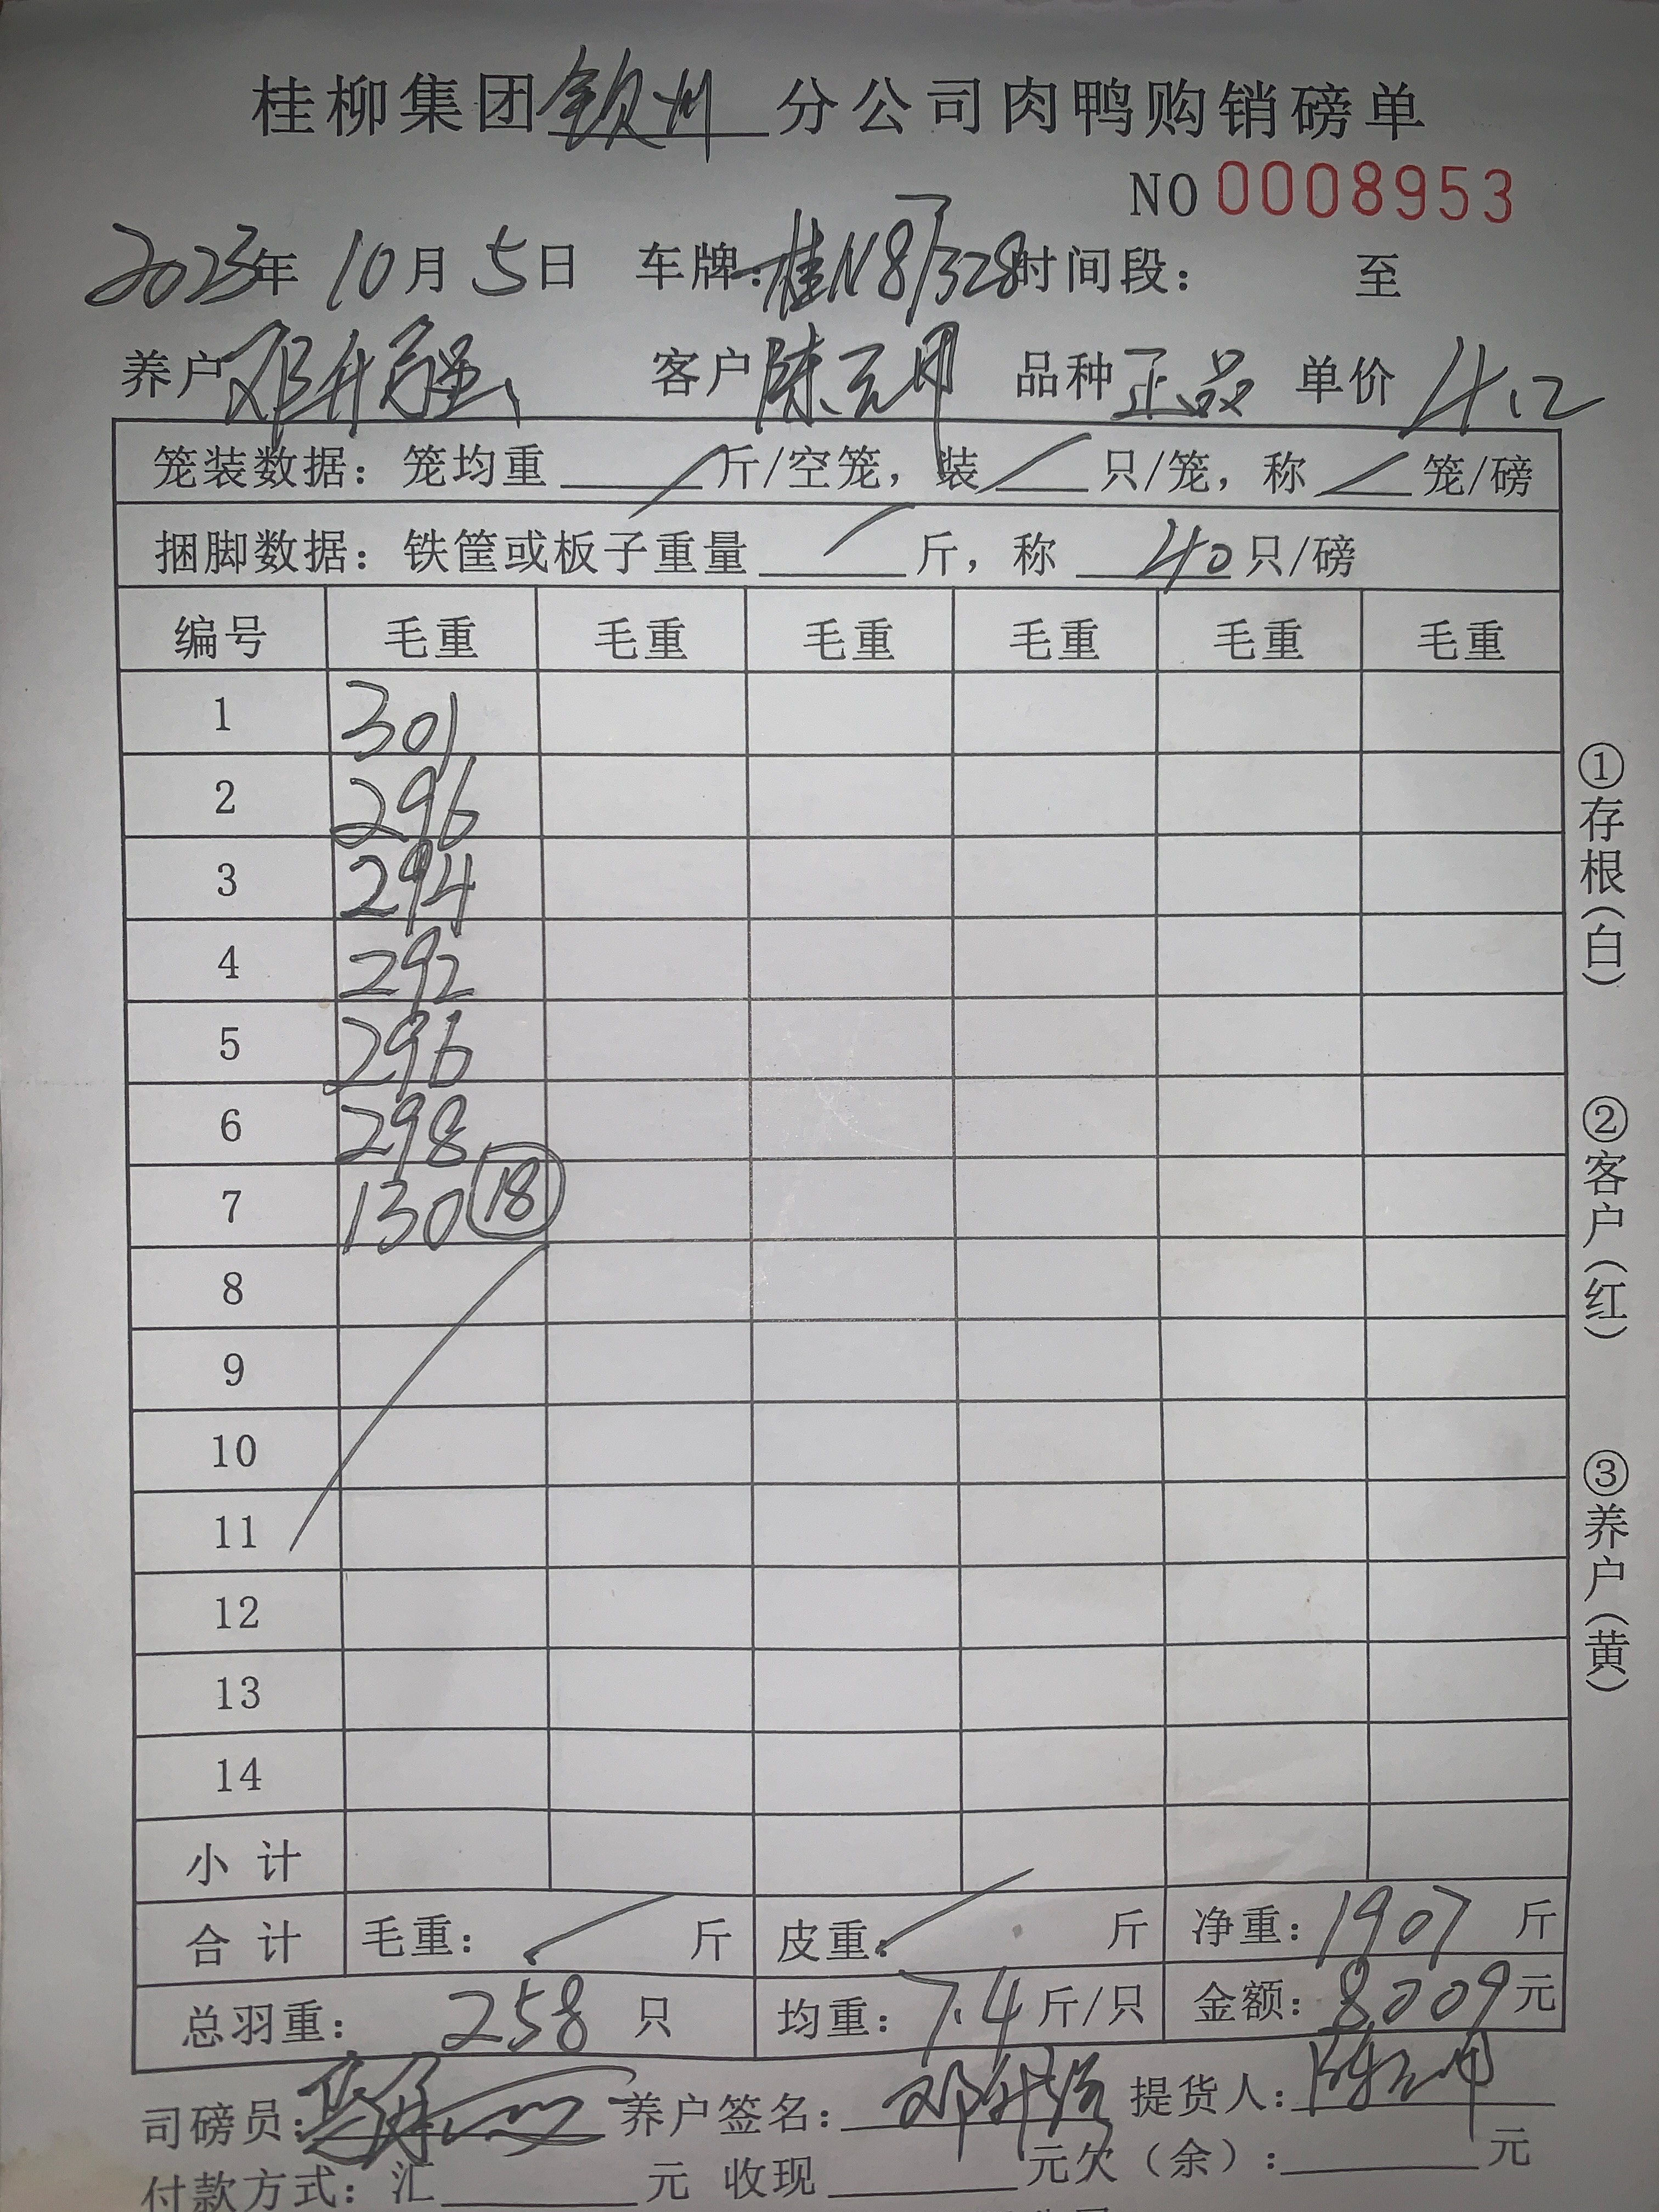 桂柳集团钦州分公司肉鸭购销磅单
NO 0008953
2023年10月5日 车牌:桂N87328时间段: 至
养户邓升强 客户陈元明 品种正品 单价4.2
笼装数据:笼均重 斤/空笼,装 只/笼,称 笼/磅
捆脚数据:铁筐或板子重量 斤,称 40只/磅
编号 毛重 毛重 毛重 毛重 毛重 毛重
1 301
2 296
3 294
4 292
5 296
6 298
7 130 18
8
9
10
11
12
13
14
小计
合计 毛重: 斤 皮重: 斤 净重:1907斤
总羽重:258只 均重:7.4斤/只 金额:8009元
司磅员: 养户签名:邓升强 提货人:
付款方式:汇 元 收现 元欠(余): 元
①存根(白)
②客户(红)
③养户(黄)